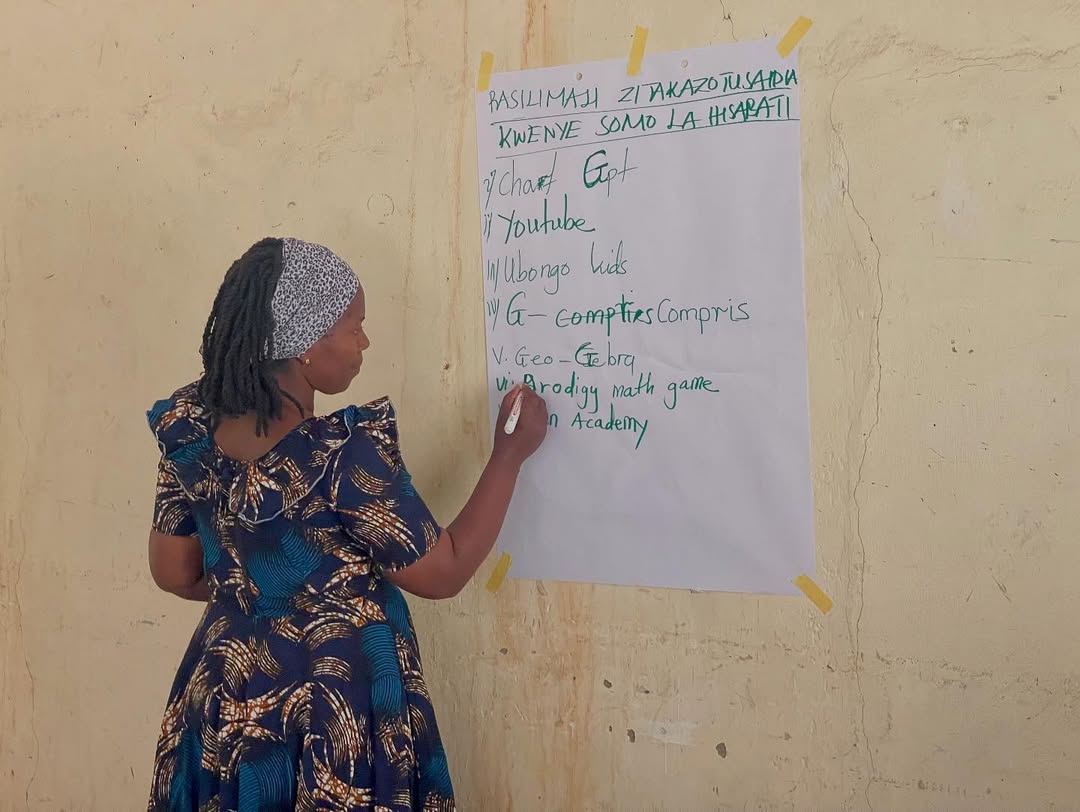 RASILIMALI ZITAKAZOTUSAIDIA
KWENYE SOMO LA HISABATI
i) Chart Gpt
ii) Youtube
iii) Ubongo kids
iv) G- Compris
V. Geo-Gebra
vi. Prodigy math game
Academy